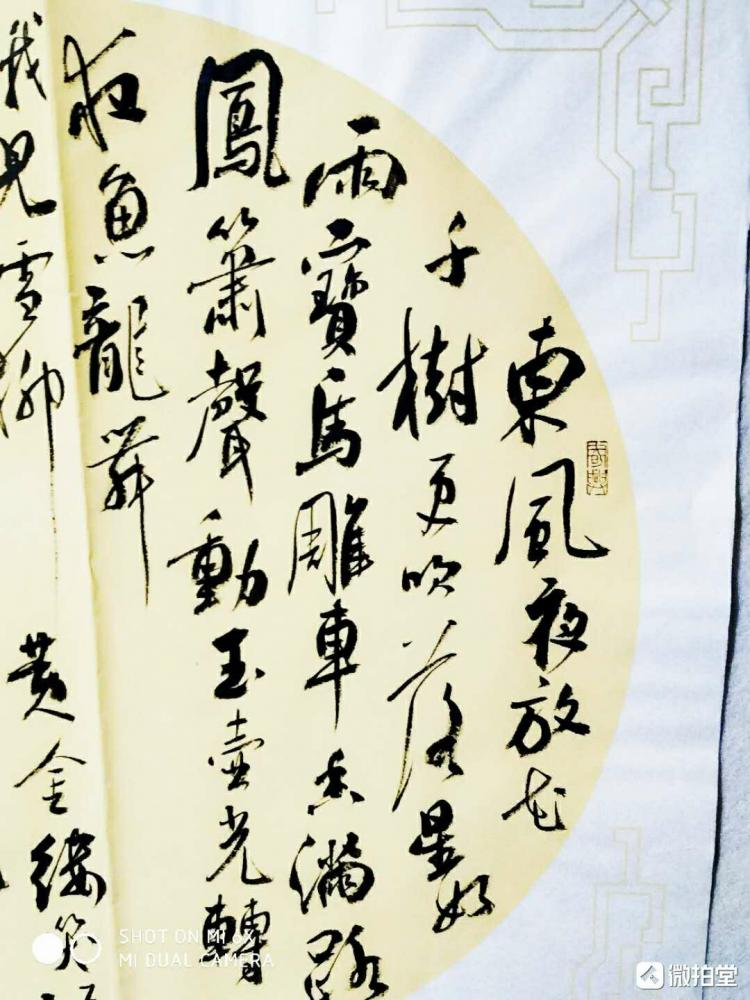 東風夜放花
千樹更吹落星如
雨寶馬雕車香滿路
鳳簫聲動玉壺光轉
夜魚龍舞
雪柳黄金縷笑
SHOT ON MI 6X
MI DUAL CAMERA
微拍堂